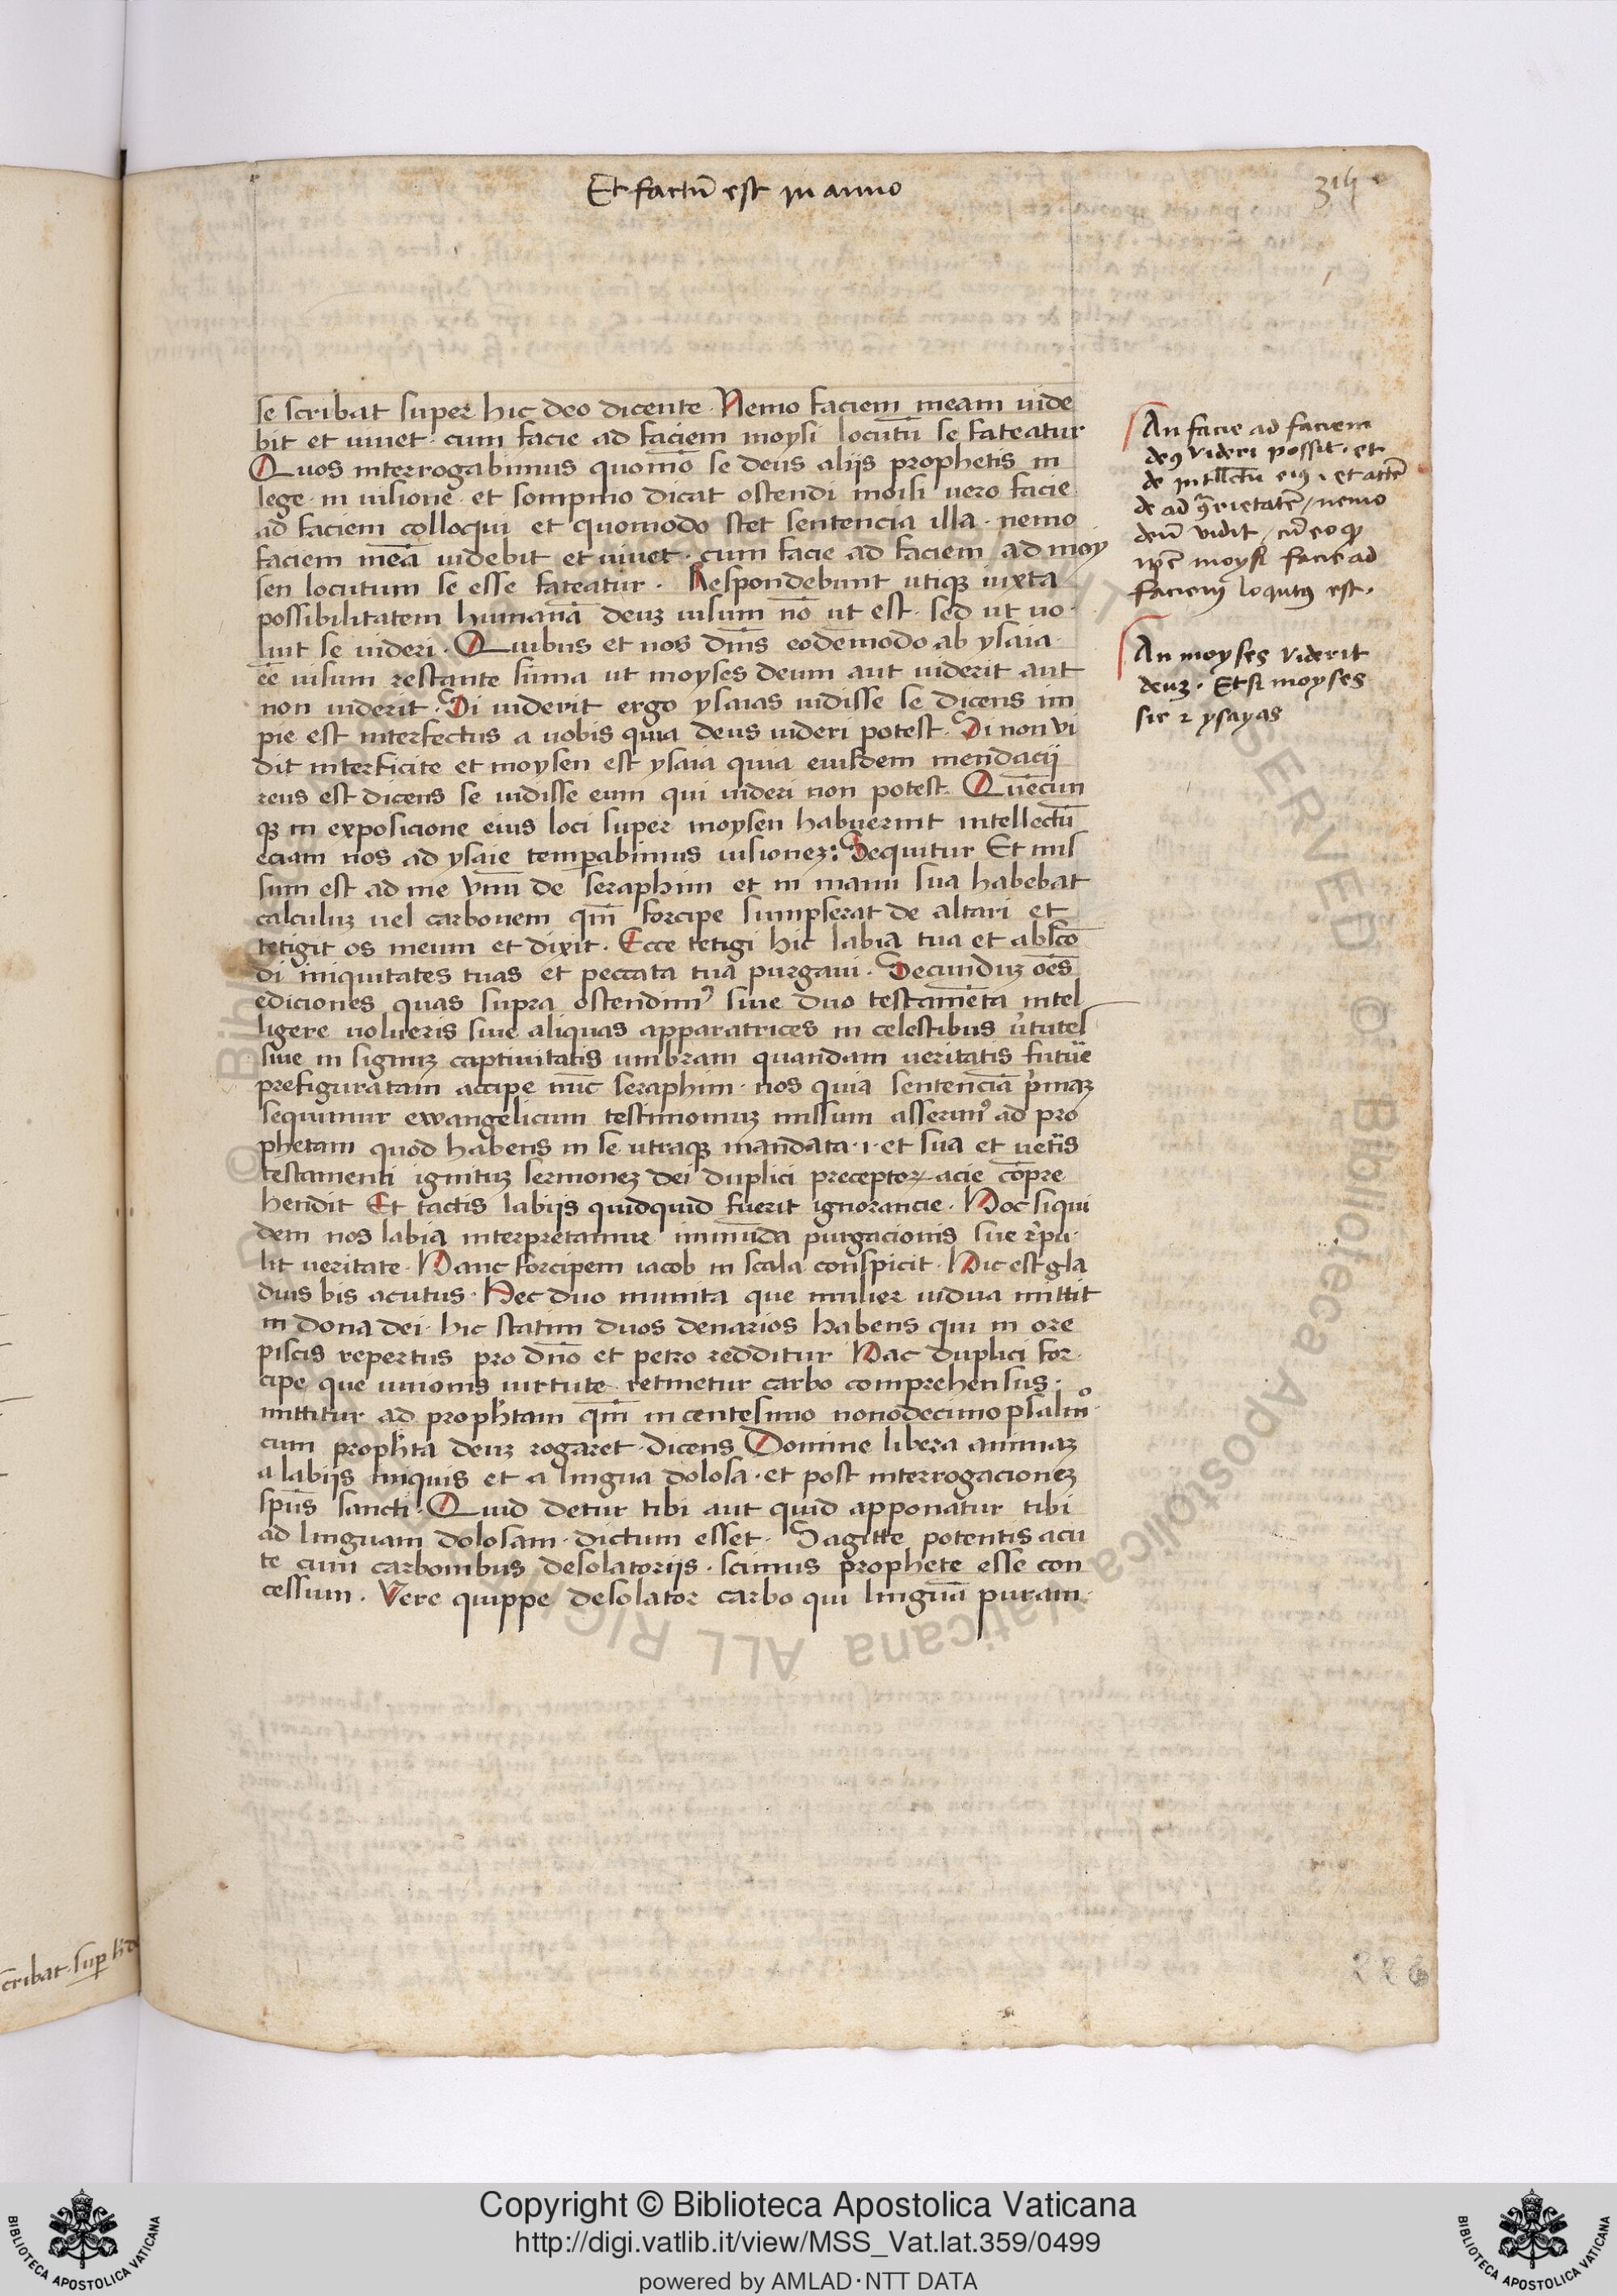 Et factū est in anno
314
se scribat super hic deo dicente. Nemo faciem meam uide
bit et uiuet. cum facie ad faciem moysi locutū se fateatur
Quos interrogabimus quomō se deus alijs prophetis in
lege. in uisione. et sompnio dicat ostendi moisi uero facie
ad faciem colloqui et quomodo stet sentencia illa. nemo
faciem meā uidebit et uiuet. cum facie ad faciem ad moy
sen locutum se esse fateatur. Respondebunt utiqꝫ iuxta
possibilitatem humanā deuꝫ uisum nō ut est. sed ut uo
luit se uideri. Quibus et nos dn̄s eodēmodo ab ysaia
ēē uisum restante sūma ut moyses deum aut uiderit aut
non uiderit. Si uiderit ergo ysaias uidisse se dicens im
pie est interfectus a uobis quia deus uideri potest. Si non vi
dit interficite et moysen est ysaia quia eiusdem mendacij
reus est dicens se uidisse eum qui uideri non potest. Quēcun
qꝫ in exposicione eius loci super moysen habuerint intellectū
eciam nos ad ysaie temperabimus uisioneꝫ: Sequitur Et mis
sum est ad me vnū de seraphim et in manu sua habebat
calculuꝫ uel carbonem qm̄ forcipe sumpserat de altari et
tetigit os meum et dixit. Ecce tetigi hic labia tua et abscō
di iniquitates tuas et peccata tua purgaui. Secunduꝫ oēs
ediciones quas supra ostendimꝰ siue duo testamēta intel
ligere uolueris siue aliquas apparatrices in celestibus u̓tutes
siue in signuꝫ captiuitatis umbram quandam ueritatis futūe
prefiguratam accipe nūc seraphim. nos quia sentenciā p̓maꝫ
sequimur ewangelicum testimoniuꝫ missum asserimꝰ ad pro
phetam quod habens in se utraqꝫ mandata .i. et sua et uetīs
testamenti ignituꝫ sermoneꝫ dei duplici preceptoꝝ acie cōpre
hendit Et tactis labijs quidquid fuerit ignorancie. Hoc siqui
dem nos labia interpretamur inmūda purgacionis sue r̓pu
lit veritate. Hanc forcipem iacob in scala conspicit. Hic est gla
dius bis acutus. Hec duo munita que mulier uidua mittit
in dona dei. hic statim duos denarios habens qui in ore
piscis repertus pro dn̄o et petro redditur Hac duplici for
cipe que unionis uirtute retinetur carbo comprehensus.
mittitur ad proph̄tam qm̄ in centesimo nonodecimo psalmº
cum proph̄ta deuꝫ rogaret. dicens Domine libera animaꝫ
a labijs iniquis et a lingua dolosa. et post interrogacioneꝫ
spūs sancti. Quid detur tibi aut quid apponatur tibi
ad linguam dolosam. dictum esset. Sagitte potentis acu
te cum carbonibus desolatorijs. scimus prophete esse con
cessum. Vere quippe desolator carbo qui linguā puram
An facie ad faciem
deꝰ videri possit. et
de intll̄ctu eiꝰ. et attē
de ad 9̓rietatē / nemo
deū vidit / cū eoqꝫ
ip̄e moysi facie ad
faciem loqutꝰ est.
An moyses viderit
deuꝫ. Et si moyses
sic ⁊ ysayas
cribat. sup̱
226
Copyright © Biblioteca Apostolica Vaticana
http://digi.vatlib.it/view/MSS_Vat.lat.359/0499
powered by AMLAD·NTT DATA
BIBLIOTECA APOSTOLICA VATICANA
BIBLIOTECA APOSTOLICA VATICANA